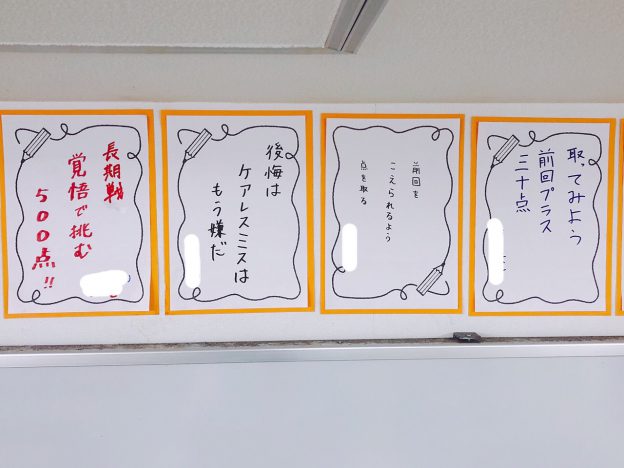 長期戦
覚悟で挑む
500点!!
後悔は
ケアレスミスは
もう嫌だ
前回を
こえられるよう
点を取る
取ってみよう
前回プラス
三十点